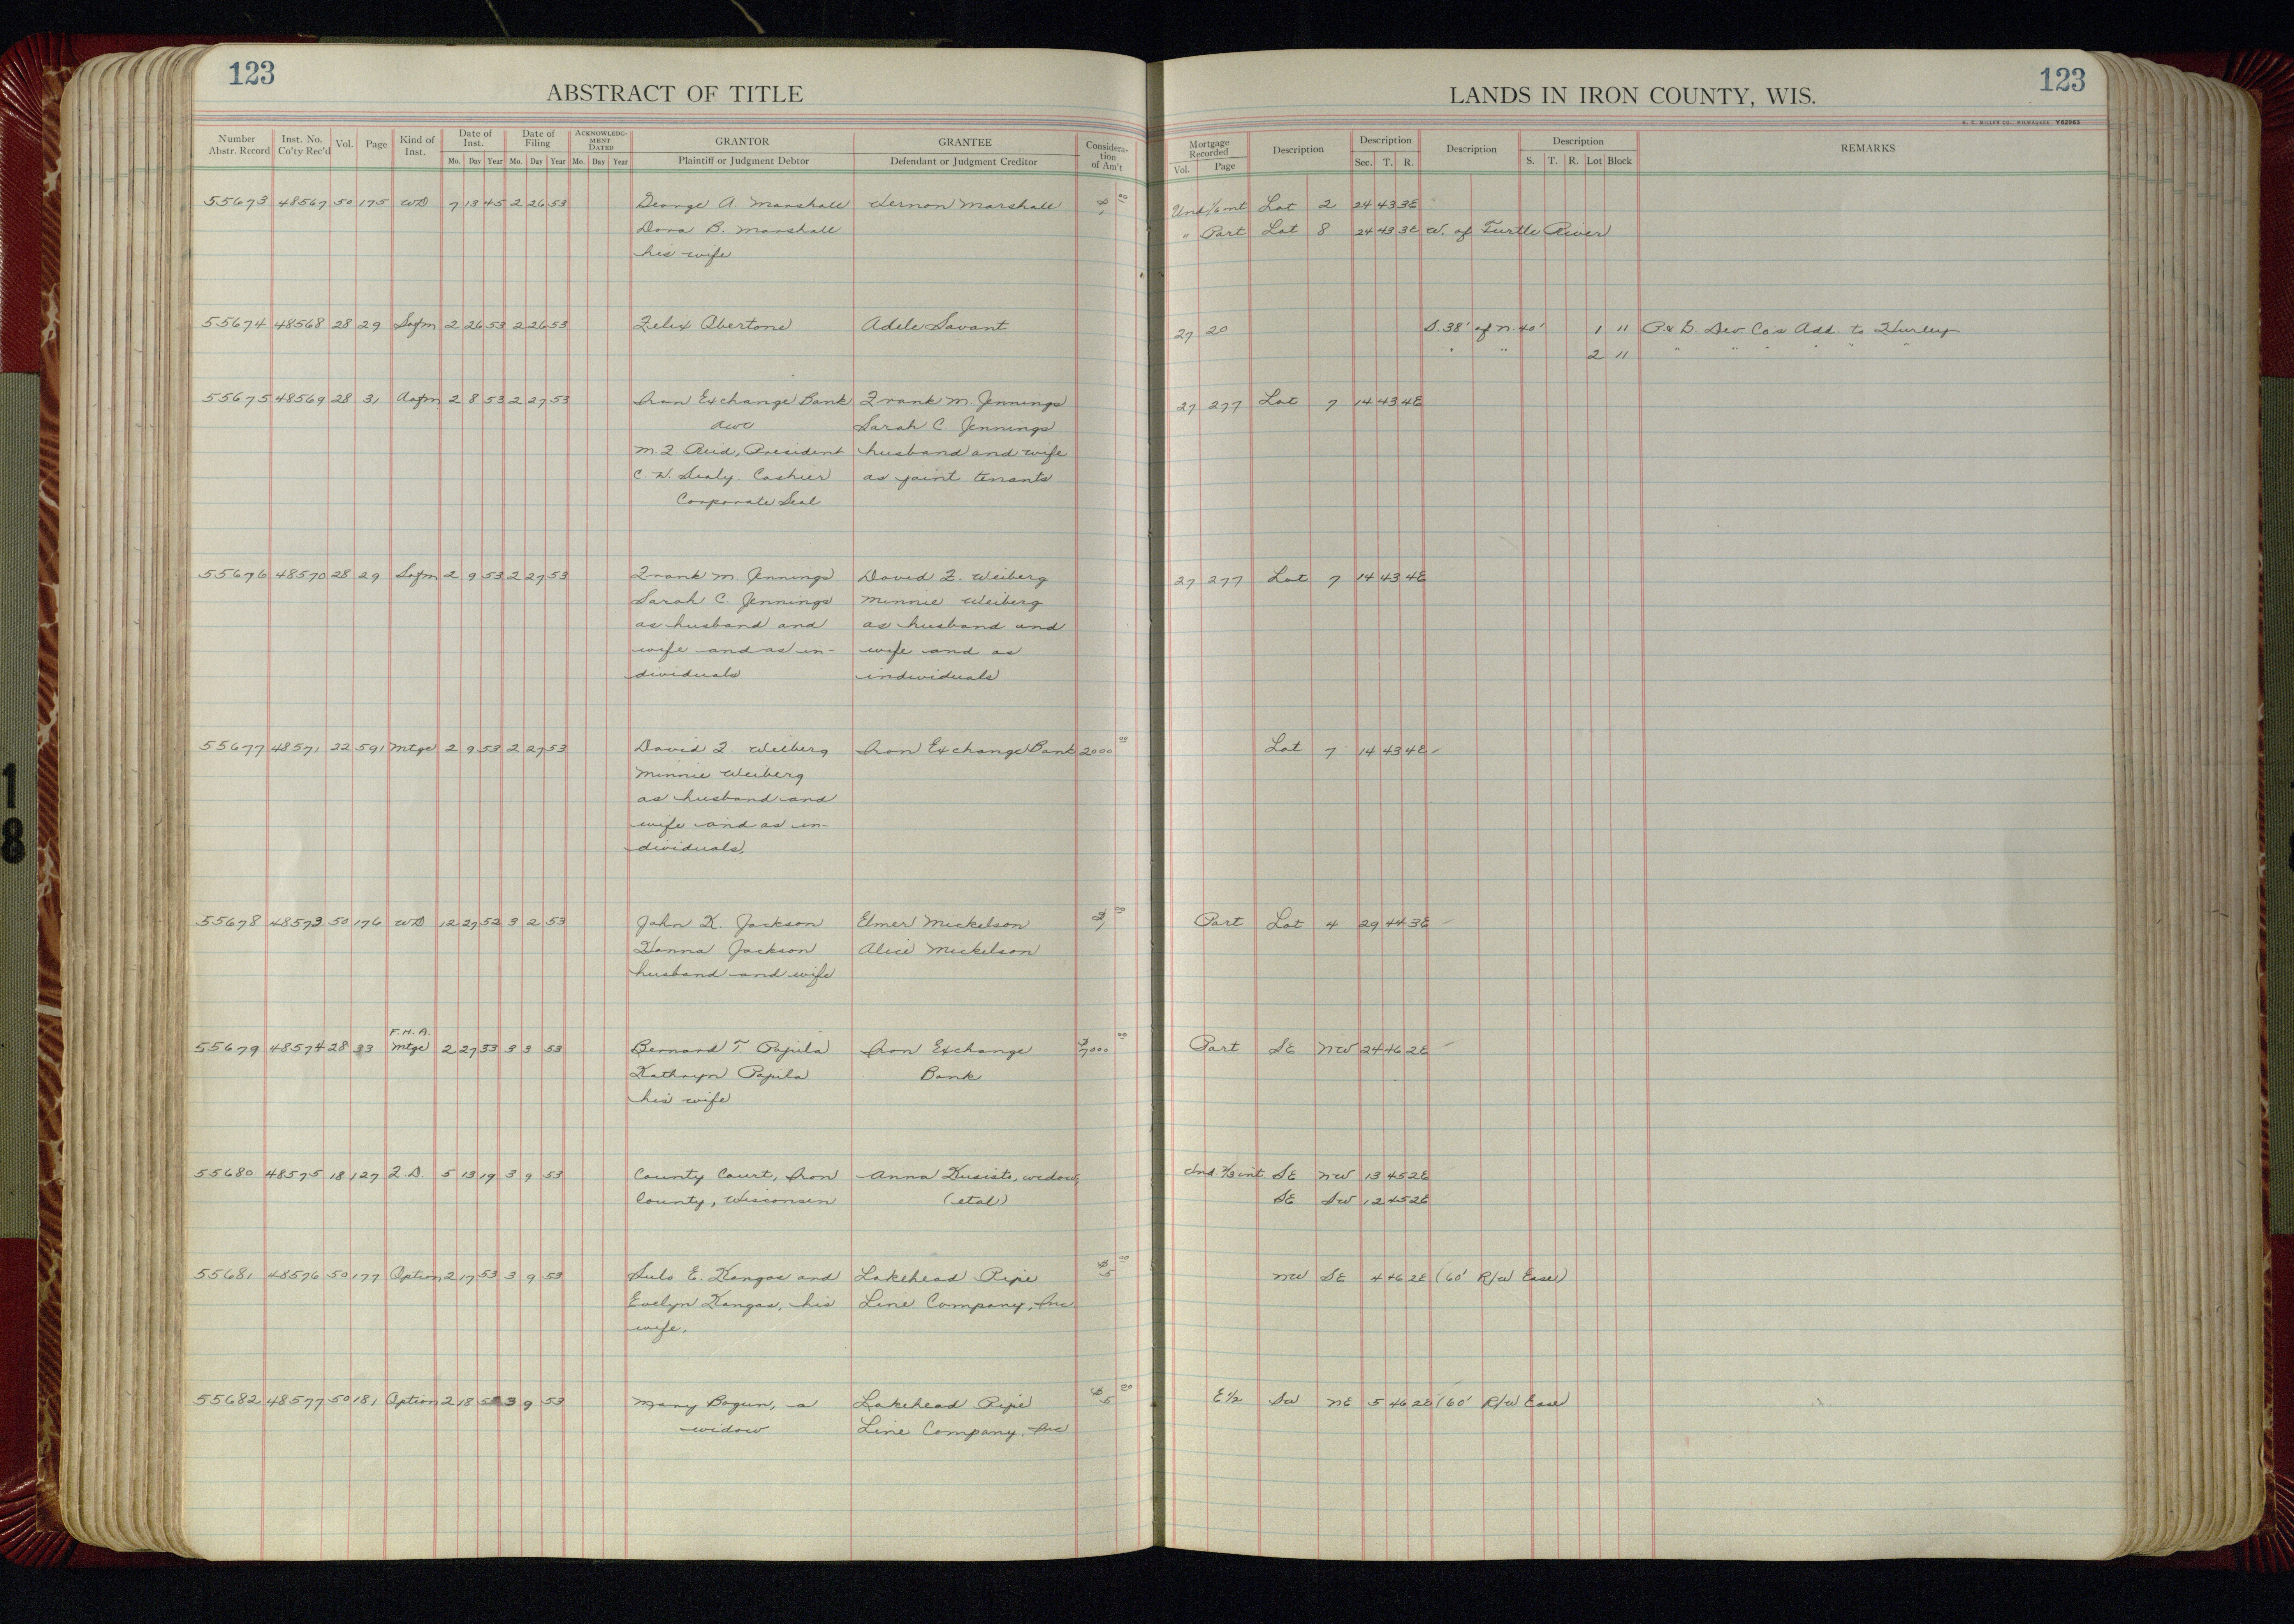 123
ABSTRACT OF TITLE
LANDS IN IRON COUNTY, WIS.
123
Number Abstr. Record Inst. No. Co'ty Rec'd Vol. Page Kind of Inst. Date of Inst. Mo. Day Year Date of Filing Mo. Day Year ACKNOWLEDGMENT DATED Mo. Day Year GRANTOR Plaintiff or Judgment Debtor GRANTEE Defendant or Judgment Creditor Consideration of Am't
Mortgage Recorded Vol. Page Description Description Sec. T. R. Description Description S. T. R. Lot Block REMARKS
55673 48567 50 175 WD 7 13 45 2 26 53 George A. Marshall Vernon Marshall $1 00 Und 1/6 int Lot 2 24 43 3E
Dora B. Marshall " Part Lot 8 24 43 3E W. of Turtle River
his wife
55674 48568 28 29 Satm 2 26 53 2 26 53 Felix Abertone Adele Savant 27 20 S. 38' of N. 40' 1 11 P. & G. Dev Co's Add. to Hurley
" " 2 11 " " " " " "
55675 48569 28 31 Aotm 2 8 53 2 27 53 Iron Exchange Bank Frank M. Jennings 27 277 Lot 7 14 43 4E
Sarah C. Jennings
M. F. Reid, President husband and wife
Cashier as joint tenants
Corporate Seal
55676 48570 28 29 Satm 2 9 53 2 27 53 Frank M. Jennings David F. Weiberg 27 277 Lot 7 14 43 4E
Sarah C. Jennings Minnie Weiberg
as husband and as husband and
wife and as in- wife and as
dividuals individuals
55677 48571 22 591 Mtge 2 9 53 2 27 53 David F. Weiberg Iron Exchange Bank 2000 00 Lot 7 14 43 4E
Minnie Weiberg
as husband and
wife and as in-
dividuals.
55678 48573 50 176 WD 12 27 52 3 2 53 John K. Jackson Elmer Mickelson $1 00 Part Lot 4 29 44 3E
Hanna Jackson Alice Mickelson
husband and wife
F.H.A.
55679 48574 28 33 Mtge 2 27 53 3 3 53 Bernard T. Papila Iron Exchange $7000 00 Part SE NW 24 46 2E
Kathryn Papila Bank
his wife
55680 48575 18 127 F.D. 5 13 19 3 9 53 County Court, Iron Anna Kusisto, widow, Und. 2/3 int. SE NW 13 45 2E
County, Wisconsin (etal) SE SW 12 45 2E
55681 48576 50 177 Option 2 17 53 3 9 53 Sulo E. Kangas and Lakehead Pipe $5 00 NW SE 4 46 2E (60' R/W Ease)
Evelyn Kangas, his Line Company, Inc
wife.
55682 48577 50 181 Option 2 18 3 9 53 Mary Bogun, a Lakehead Pipe $5 00 E1/2 SW NE 5 46 2E (60' R/W Ease)
widow Line Company, Inc
18